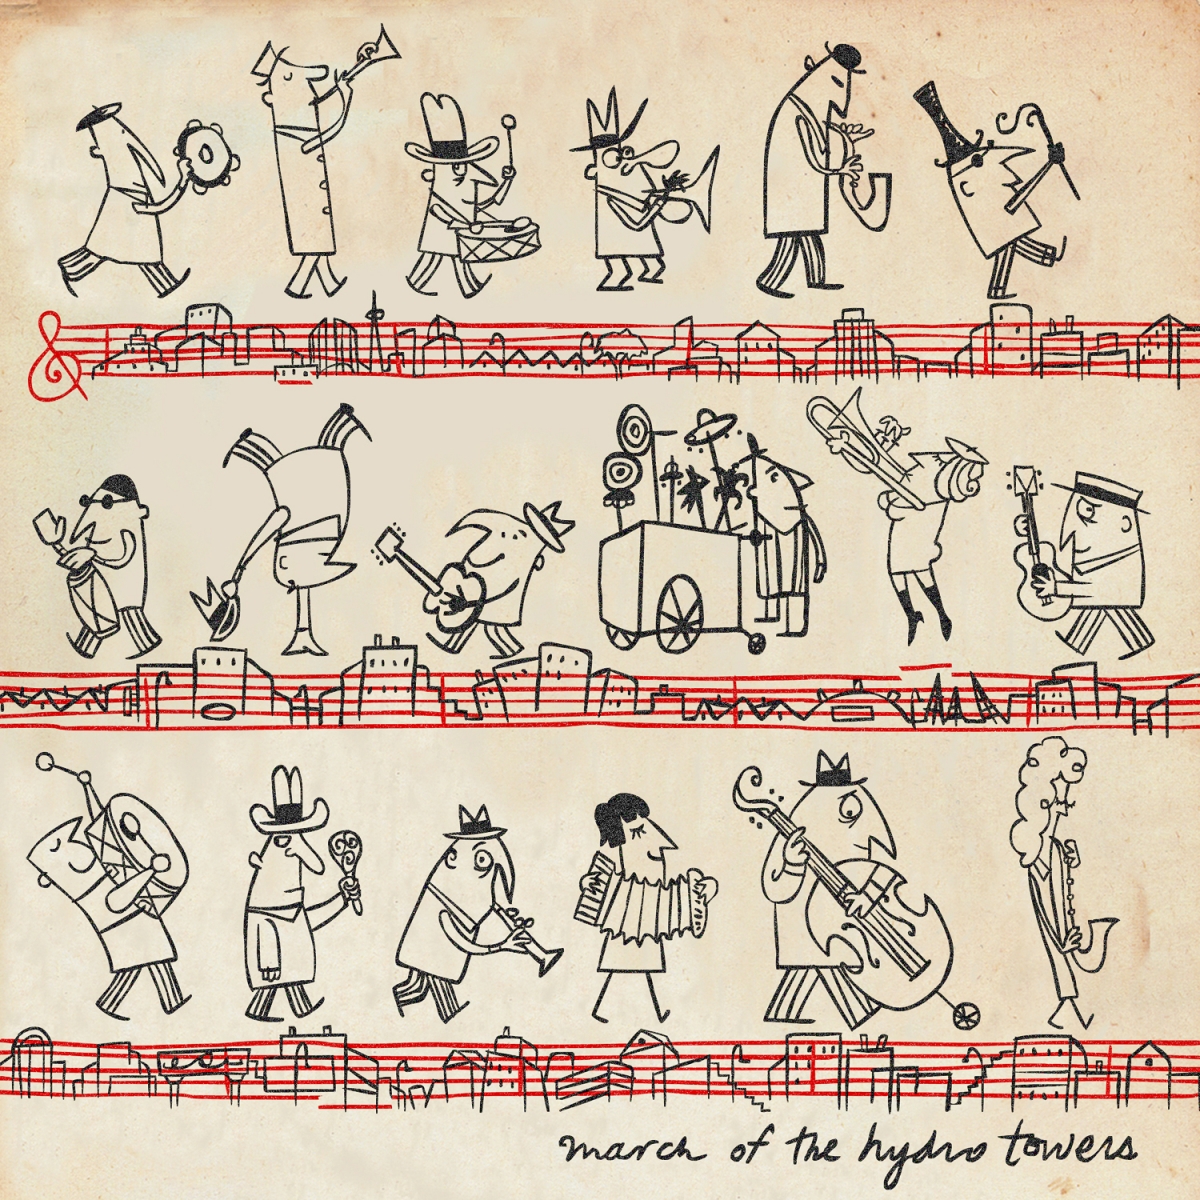 march of the hydro towers